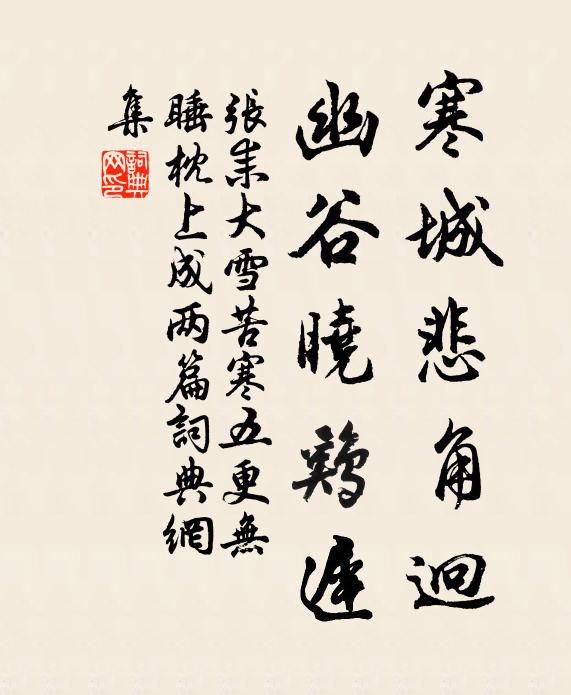 寒城悲角迥
幽谷曉鷄遲
張耒大雪苦寒五更無
睡枕上成两篇詞典網
集
詞典网印